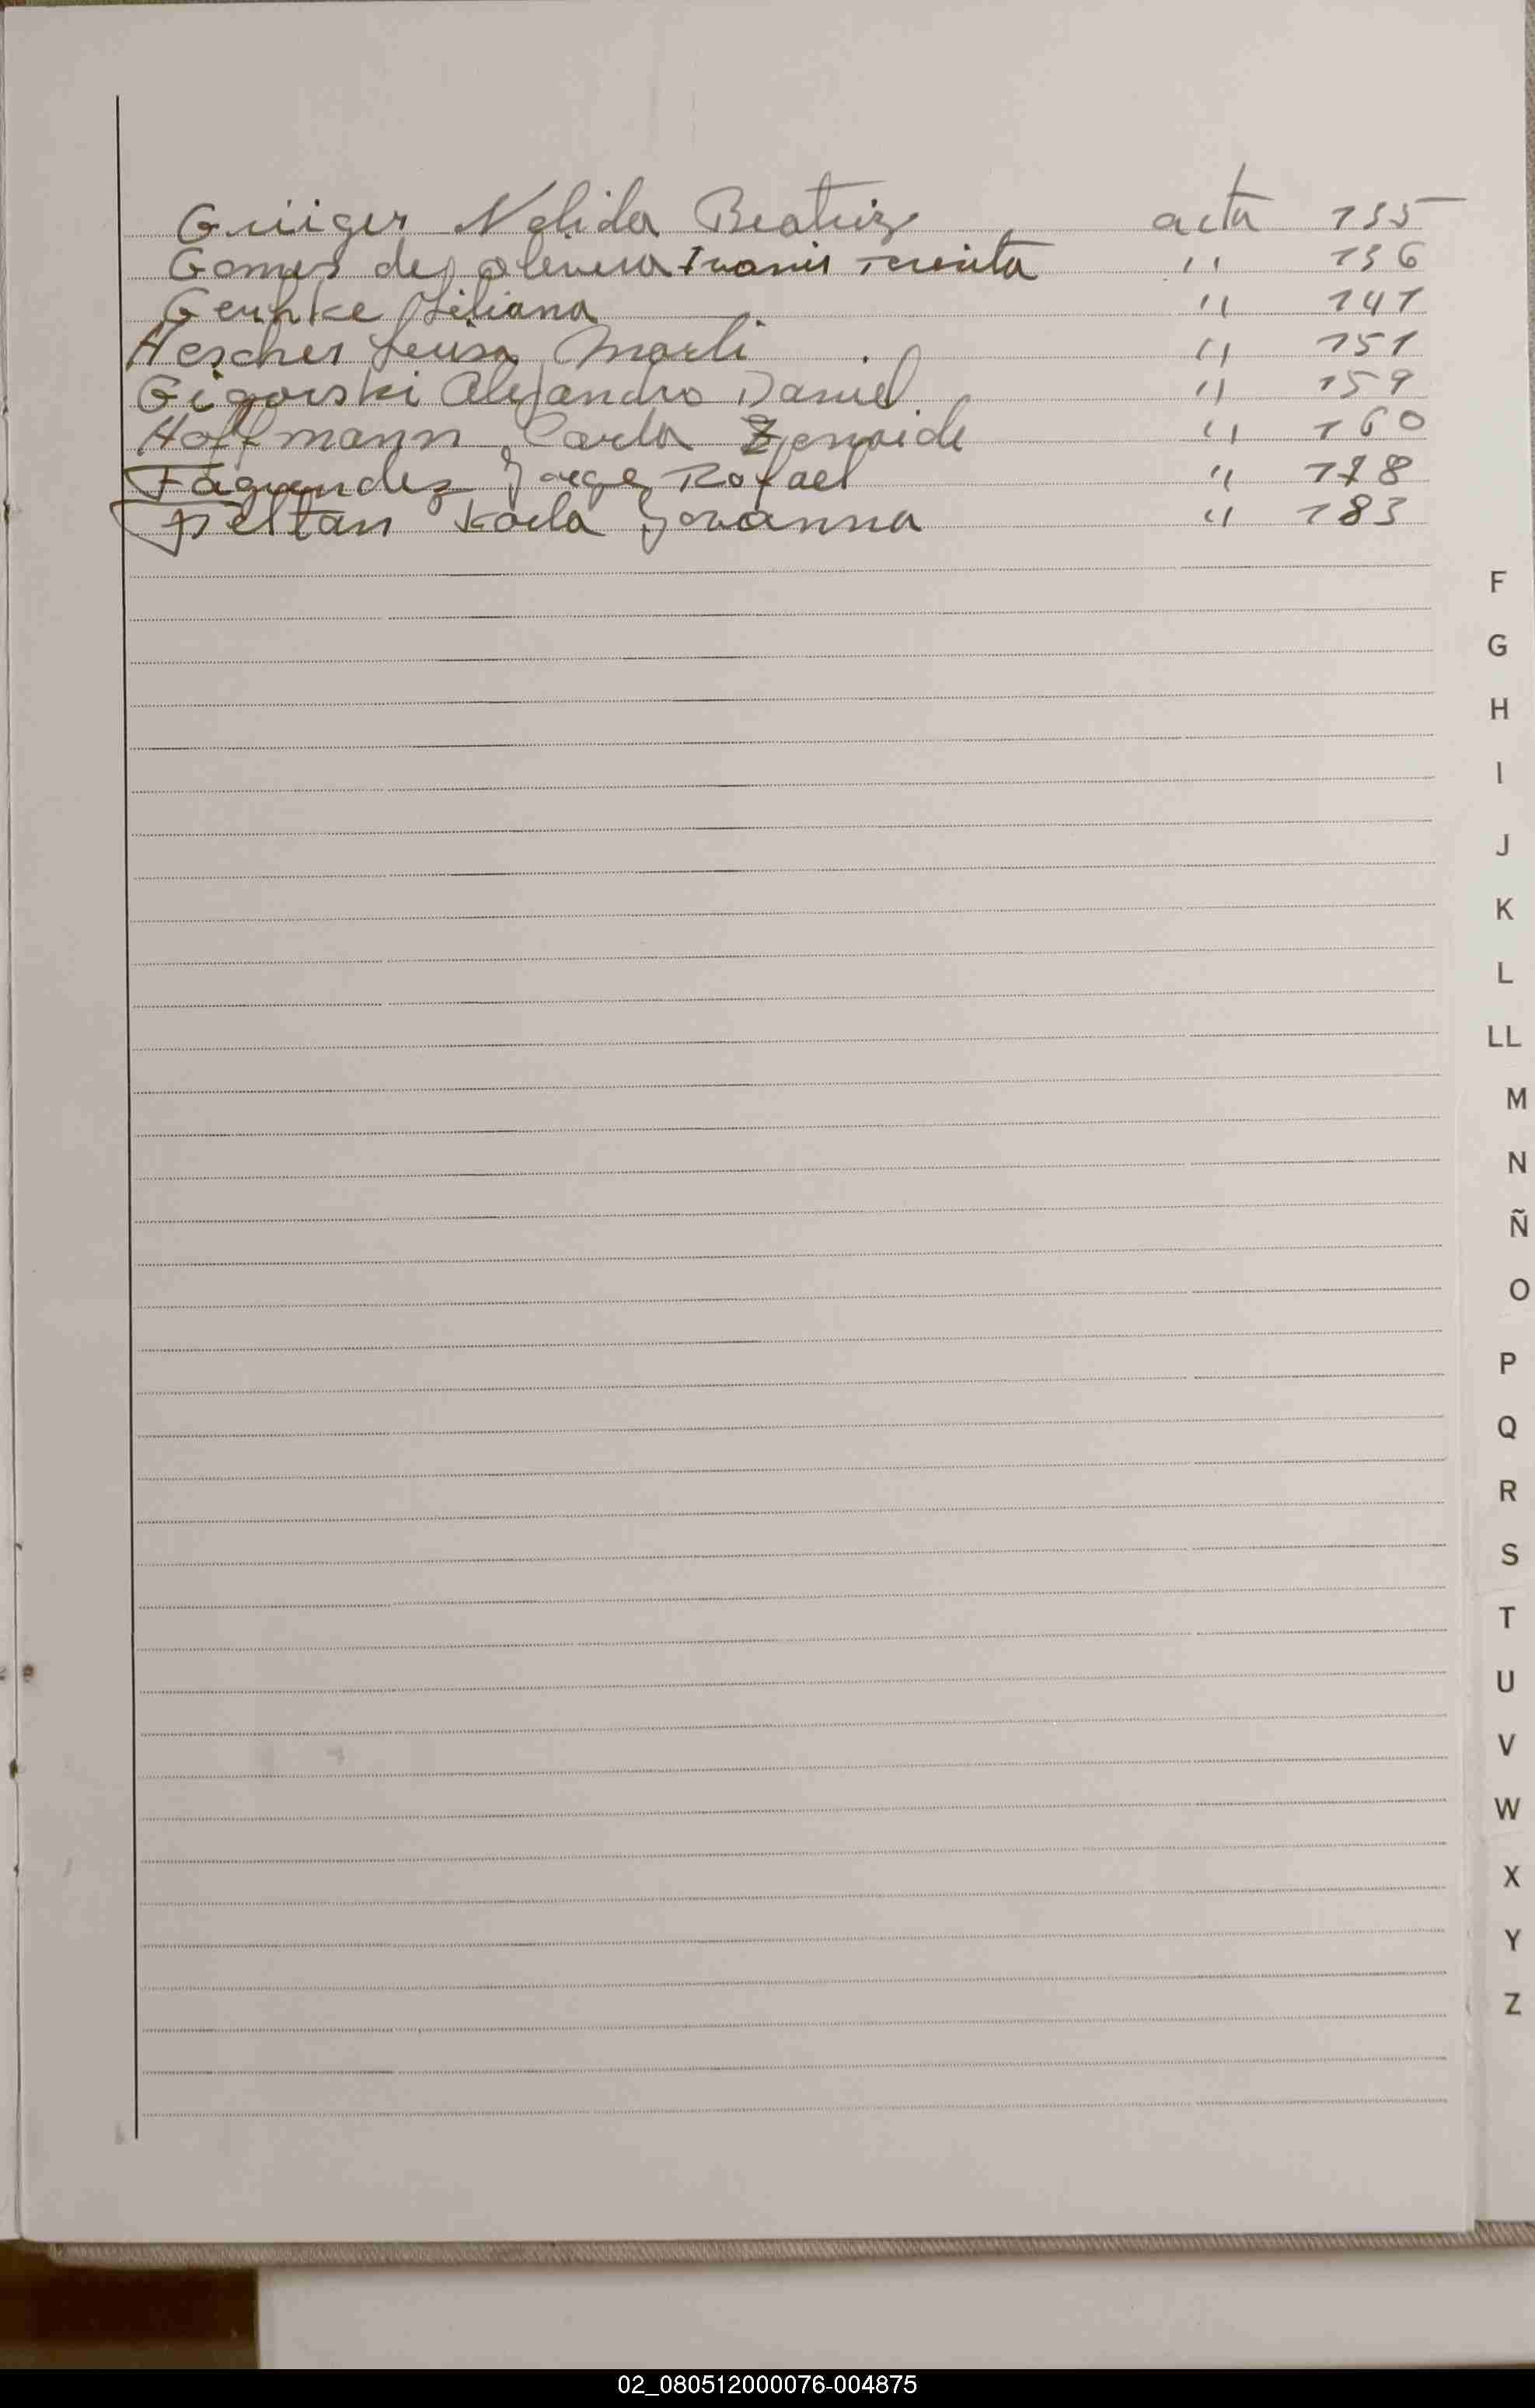 Grüiger Nelida Beatriz acta 135
Gomes de Olivera Teresita " 136
Gerhke Liliana " 141
Hescher Luisa Marli " 151
Gigorski Alejandro Daniel " 159
Hoffmann Carla Zenaide " 160
Fagundez Jorge Rafael " 178
Feltan Karla Jovanna " 183
F
G
H
I
J
K
L
LL
M
N
Ñ
O
P
Q
R
S
T
U
V
W
X
Y
Z
02_080512000076-004875